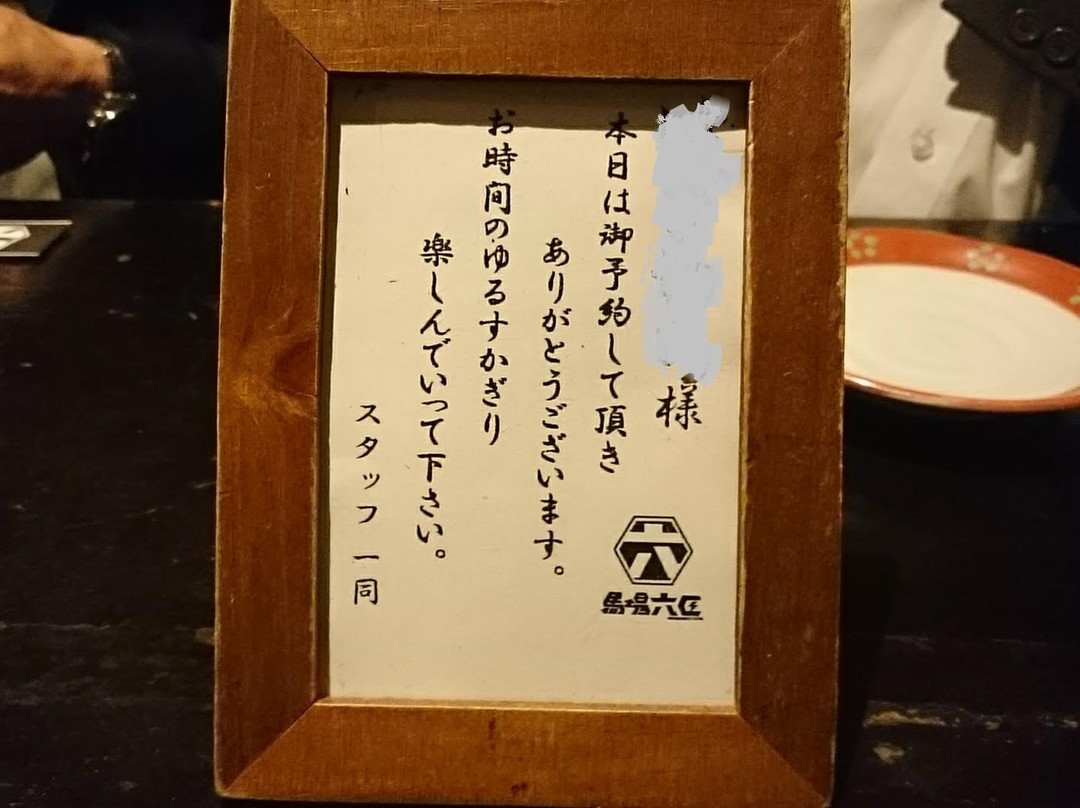 様
本日は御予約して頂き
ありがとうございます。
お時間のゆるすかぎり
楽しんでいって下さい。
スタッフ一同
六
馬場六区